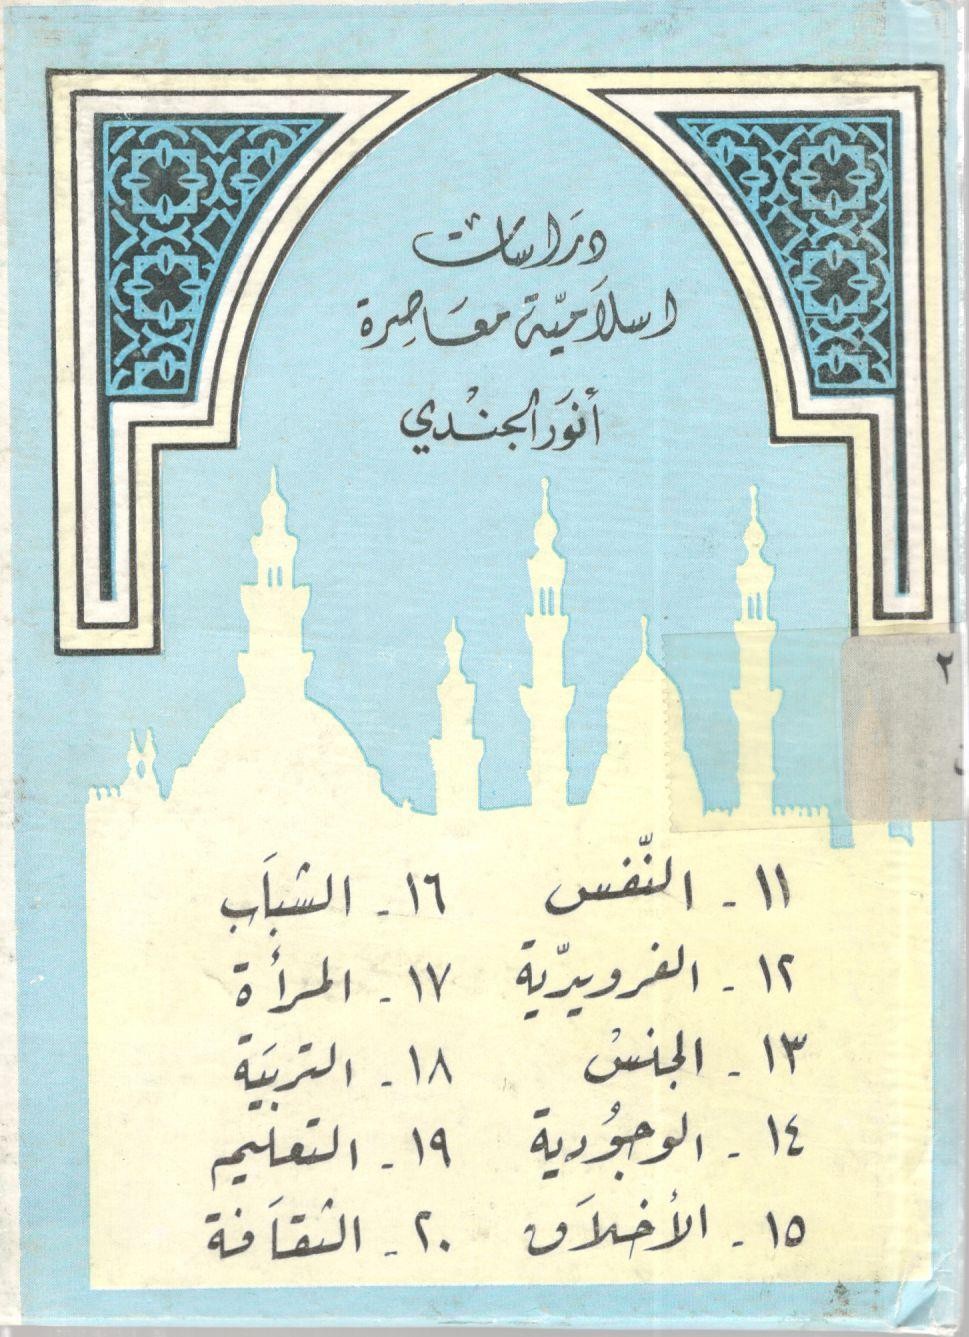 دراسات
اسلامية معاصرة
أنور الجندي
٢
١١ - النفس
١٢ - الفرويدية
١٣ - الجنس
١٤ - الوجودية
١٥ - الأخلاق
١٦ - الشباب
١٧ - المرأة
١٨ - التربية
١٩ - التعليم
٢٠ - الثقافة